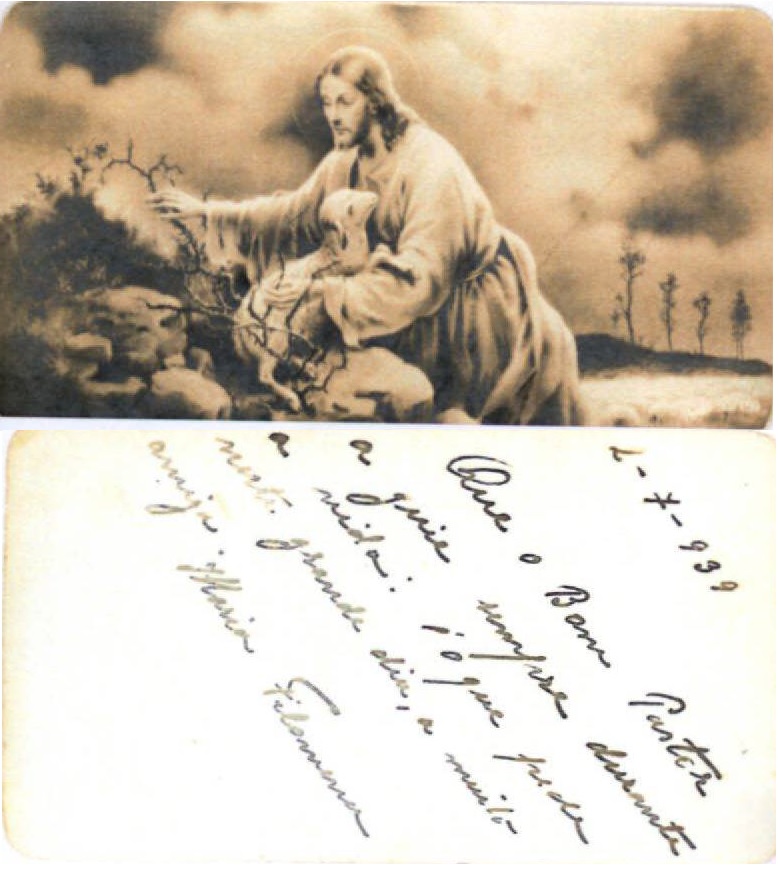 2-7-939
Que o Bom Pastor
a guie sempre durante
a vida: é o que pede
neste grande dia, a muito
amiga. Maria Filomena